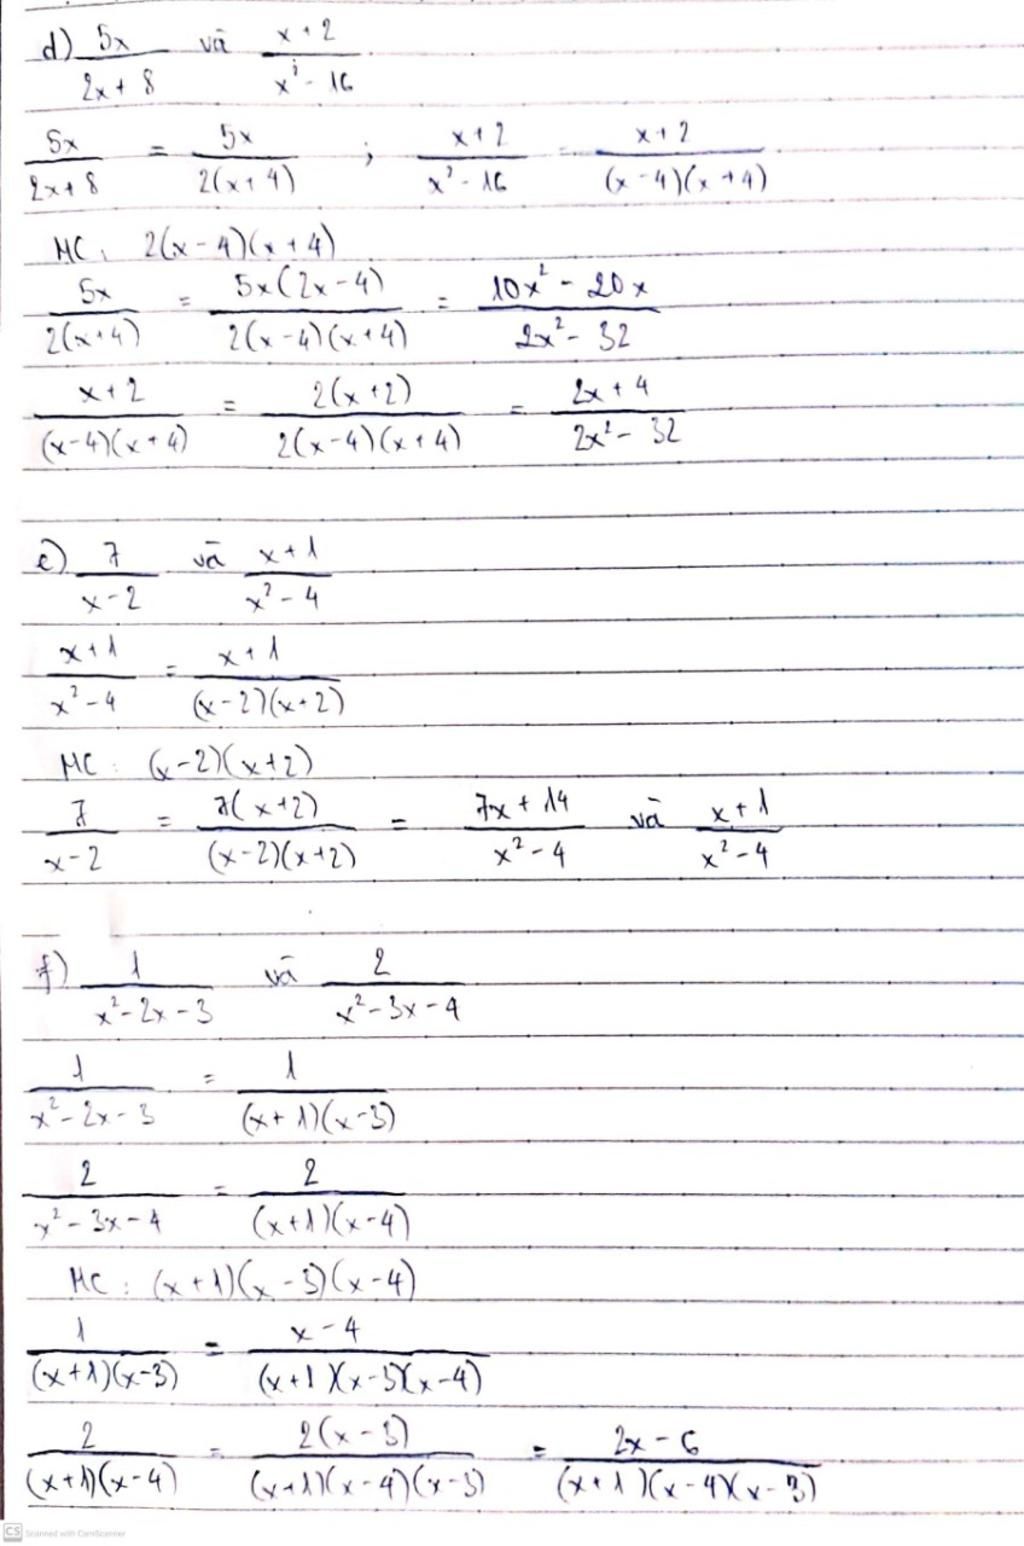 d) 5x/(2x + 8) và (x + 2)/(x² - 16)
5x/(2x + 8) = 5x/(2(x + 4)) ; (x + 2)/(x² - 16) = (x + 2)/((x - 4)(x + 4))
MC: 2(x - 4)(x + 4)
5x/(2(x + 4)) = 5x(2x - 4)/(2(x - 4)(x + 4)) = (10x² - 20x)/(2x² - 32)
(x + 2)/((x - 4)(x + 4)) = 2(x + 2)/(2(x - 4)(x + 4)) = (2x + 4)/(2x² - 32)
e) 7/(x - 2) và (x + 1)/(x² - 4)
(x + 1)/(x² - 4) = (x + 1)/((x - 2)(x + 2))
MC: (x - 2)(x + 2)
7/(x - 2) = 7(x + 2)/((x - 2)(x + 2)) = (7x + 14)/(x² - 4) và (x + 1)/(x² - 4)
f) 1/(x² - 2x - 3) và 2/(x² - 3x - 4)
1/(x² - 2x - 3) = 1/((x + 1)(x - 3))
2/(x² - 3x - 4) = 2/((x + 1)(x - 4))
MC: (x + 1)(x - 3)(x - 4)
1/((x + 1)(x - 3)) = (x - 4)/((x + 1)(x - 3)(x - 4))
2/((x + 1)(x - 4)) = 2(x - 3)/((x + 1)(x - 4)(x - 3)) = (2x - 6)/((x + 1)(x - 4)(x - 3))
CS Scanned with CamScanner